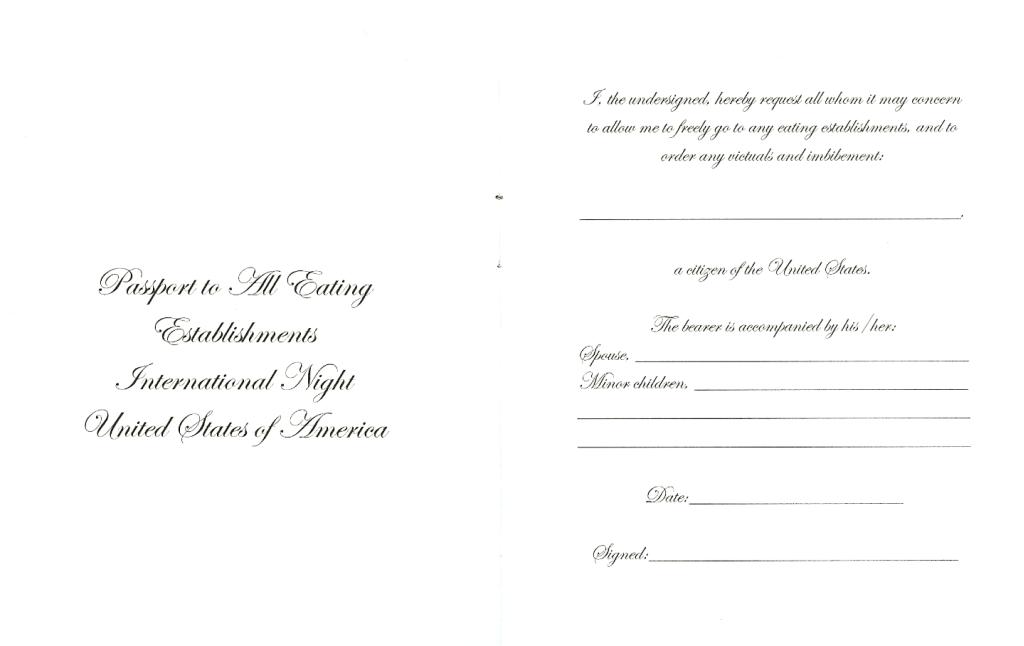 Passport to All Eating
Establishments
International Night
United States of America
I, the undersigned, hereby request all whom it may concern
to allow me to freely go to any eating establishments, and to
order any victuals and imbibement:
.
a citizen of the United States.
The bearer is accompanied by his/her:
Spouse,
Minor children,
Date:
Signed: